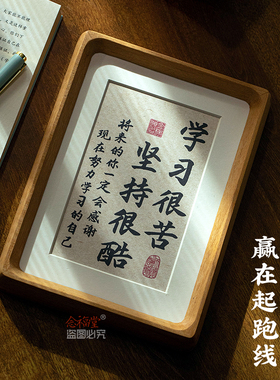 学习很苦
坚持很酷
将来的你一定会感谢
现在努力学习的自己
赢在起跑线
念福堂
盗图必究